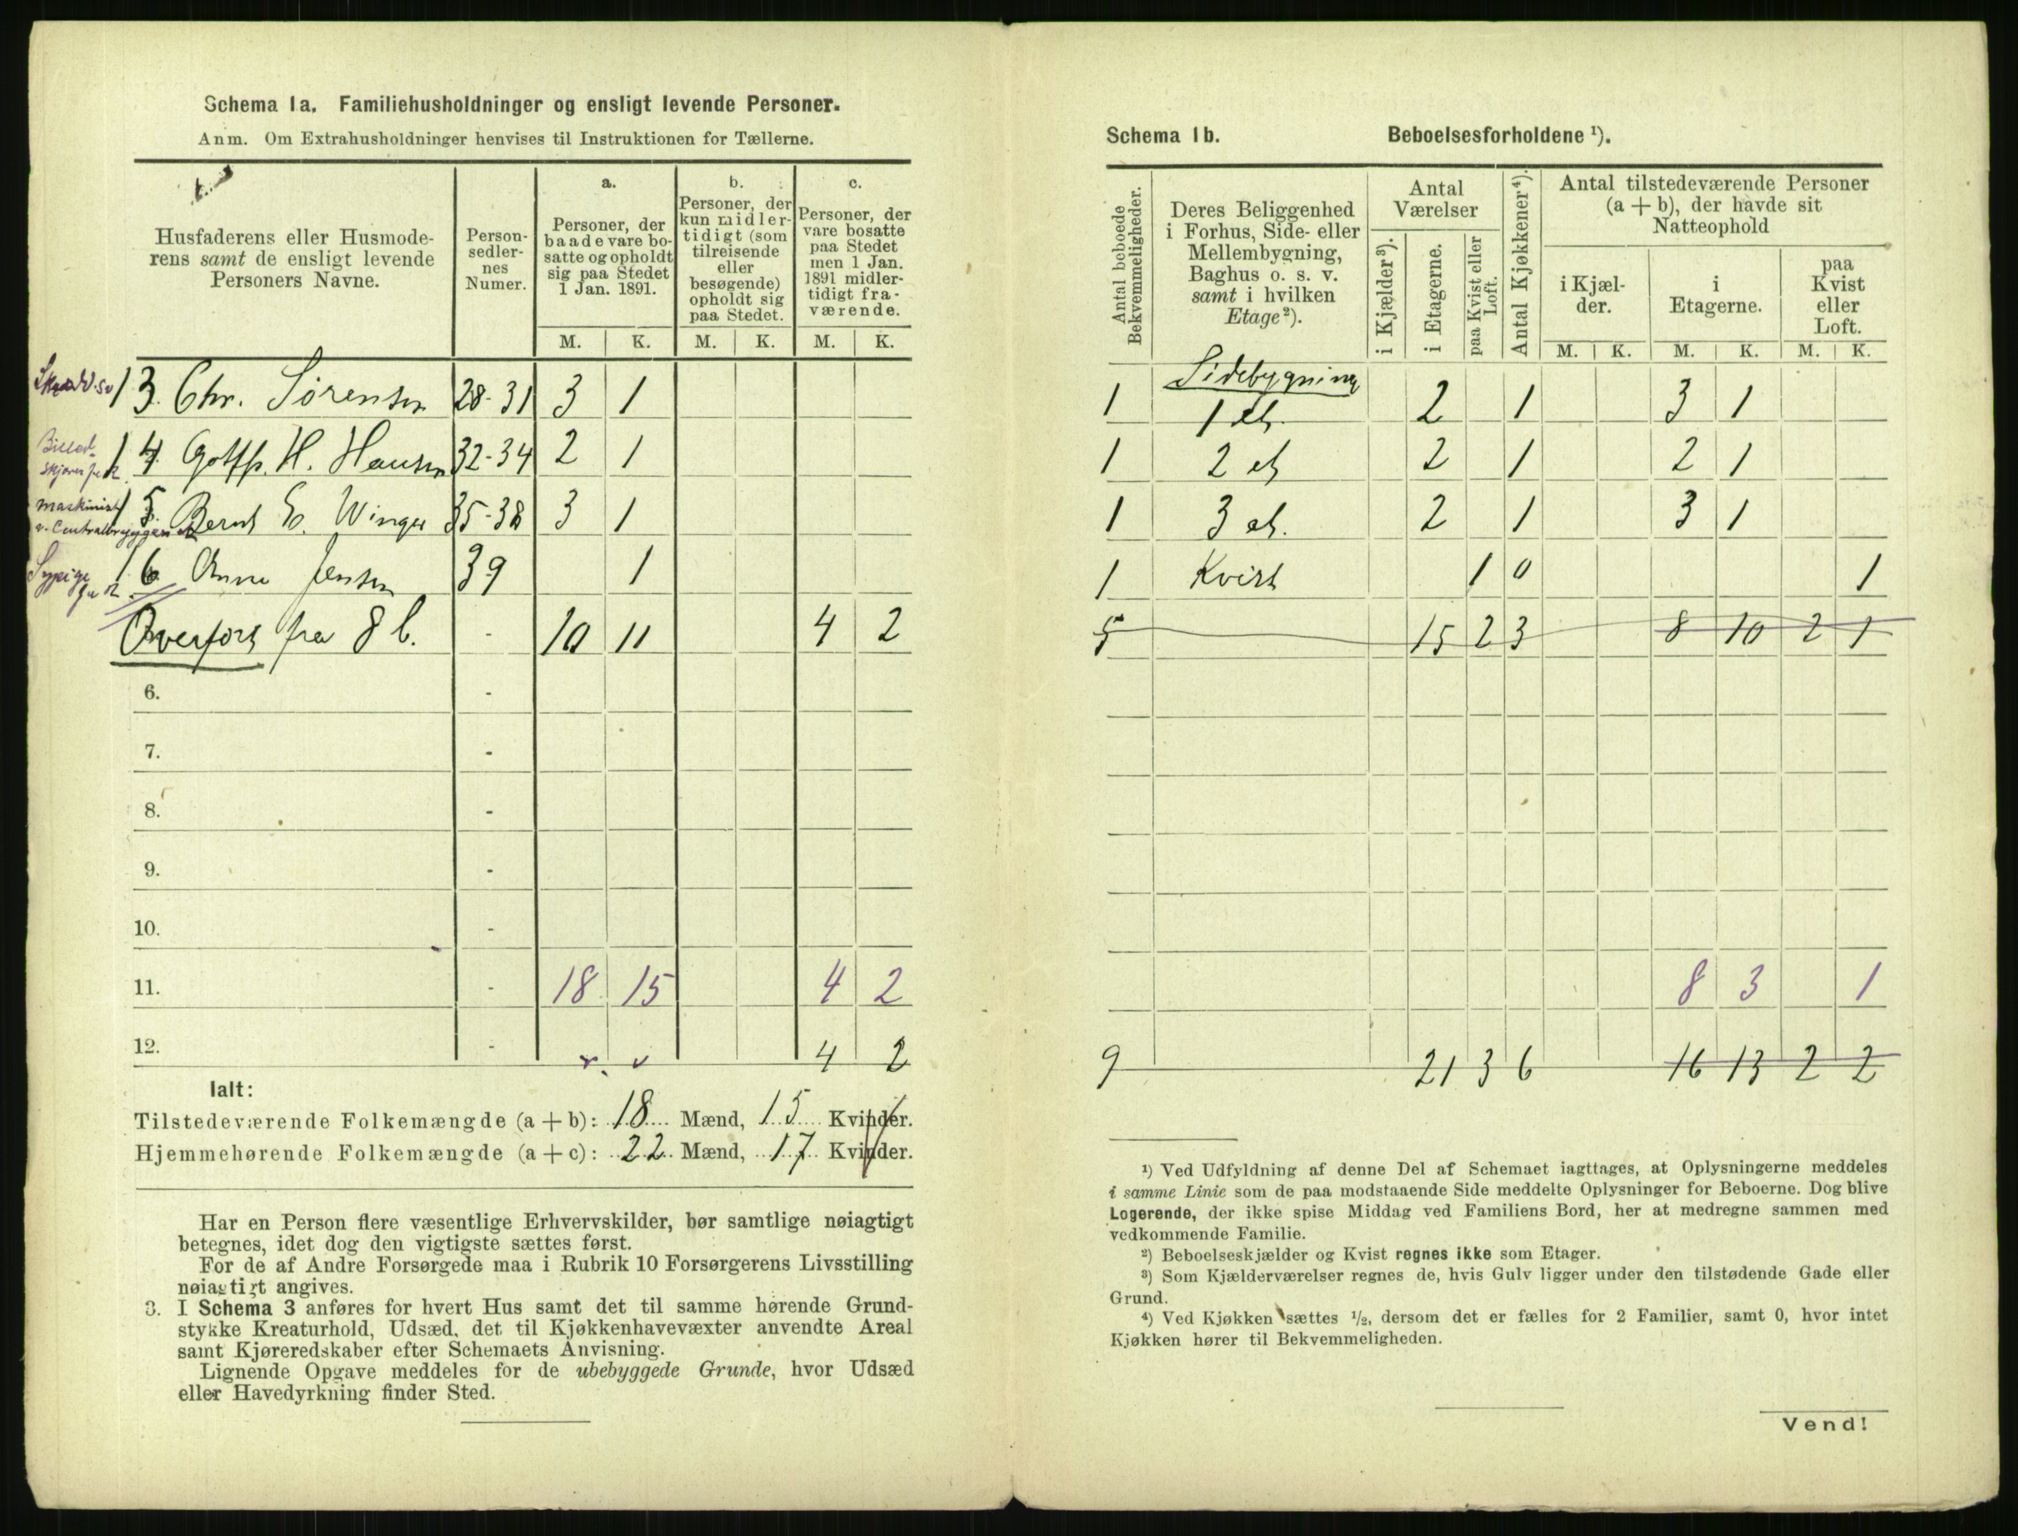 Schema 1a. Familiehusholdninger og ensligt levende Personer.
Anm. Om Extrahusholdninger henvises til Instruktionen for Tællerne.
Husfaderens eller Husmode-
rens samt de ensligt levende
Personers Navne.
Person-
sedler-
nes
Numer.
a.
Personer, der
baade vare bo-
satte og opholdt
sig paa Stedet
1 Jan. 1891.
b.
Personer, der
kun midler-
tidigt (som
tilreisende
eller
besøgende)
opholdt sig
paa Stedet.
c.
Personer, der
vare bosatte
paa Stedet
men 1 Jan.
1891 midler-
tidigt fra-
værende.
M. K. M. K. M. K.
1 3. Chr. Sørensen 28-31 3 1
1 4 Gottfr. H. Hansen 32-34 2 1
maskinist
v. Centralbryggeriet
1 5. Bernt E. Winger 35-38 3 1
Sypige
1 6 Anne Jensen 39 1
Overført fra 8 b. - 10 11 4 2
6. -
7. -
8. -
9. -
10. -
11. - 18 15 4 2
12. - 4 2
Ialt:
Tilstedeværende Folkemængde (a + b): 18 Mænd, 15 Kvinder.
Hjemmehørende Folkemængde (a + c): 22 Mænd, 17 Kvinder.
Har en Person flere væsentlige Erhvervskilder, bør samtlige nøiagtigt
betegnes, idet dog den vigtigste sættes først.
For de af Andre Forsørgede maa i Rubrik 10 Forsørgerens Livsstilling
nøiagtigt angives.
3. I Schema 3 anføres for hvert Hus samt det til samme hørende Grund-
stykke Kreaturhold, Udsæd, det til Kjøkkenhavevæxter anvendte Areal
samt Kjøreredskaber efter Schemaets Anvisning.
Lignende Opgave meddeles for de ubebyggede Grunde, hvor Udsæd
eller Havedyrkning finder Sted.
Schema 1b. Beboelsesforholdene ¹).
Antal beboede
Bekvemmeligheder.
Deres Beliggenhed
i Forhus, Side- eller
Mellembygning,
Baghus o. s. v.
samt i hvilken
Etage²).
Antal
Værelser
i Kjælder³).
i Etagerne.
paa Kvist eller
Loft.
Antal Kjøkkener⁴).
Antal tilstedeværende Personer
(a + b), der havde sit
Natteophold
i Kjæl-
der.
i
Etagerne.
paa
Kvist
eller
Loft.
M. K. M. K. M. K.
Sidebygning
1 1 et. 2 1 3 1
1 2 et 2 1 2 1
1 3 et. 2 1 3 1
1 Kvist 1 0 1
5 15 2 3 8 10 2 1
8 3 1
9 21 3 6 16 13 2 2
¹) Ved Udfyldning af denne Del af Schemaet iagttages, at Oplysningerne meddeles
i samme Linie som de paa modstaaende Side meddelte Oplysninger for Beboerne. Dog blive
Logerende, der ikke spise Middag ved Familiens Bord, her at medregne sammen med
vedkommende Familie.
²) Beboelseskjælder og Kvist regnes ikke som Etager.
³) Som Kjælderværelser regnes de, hvis Gulv ligger under den tilstødende Gade eller
Grund.
⁴) Ved Kjøkken sættes ½, dersom det er fælles for 2 Familier, samt 0, hvor intet
Kjøkken hører til Bekvemmeligheden.
Vend!